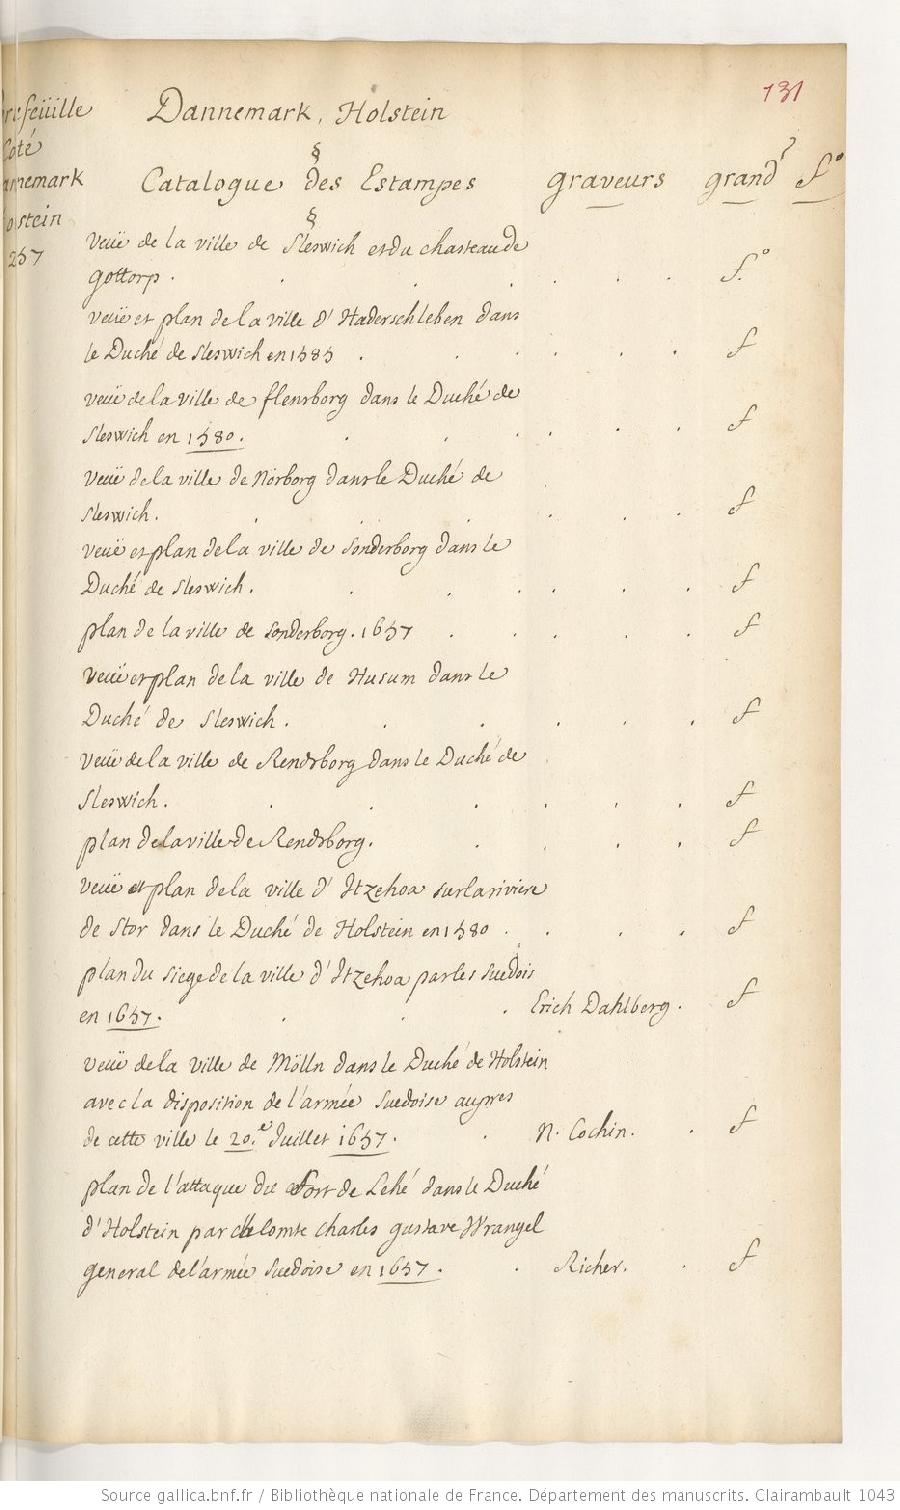 131
Dannemark, Holstein
refeüille
Coté
annemark
olstein
257
§
Catalogue des Estampes graveurs grand.r f.o
§
veüe de la ville de Sleswich et du chasteau de
gottorp . . . . . . . f.o
veüe et plan de la ville d'Haderschleben dans
le Duché de Sleswich en 1585 . . . . . f
veüe de la ville de flensborg dans le Duché de
Sleswich en 1580. . . . . . . f
veüe de la ville de Norborg dans le Duché de
Sleswich. . . . . . . f
veüe et plan de la ville de Sonderborg dans le
Duché de Sleswich. . . . . . . f
plan de la ville de Sonderborg. 1657 . . . . . f
veüe et plan de la ville de Husum dans le
Duché de Sleswich. . . . . . f
veüe de la ville de Rendsborg dans le Duché de
Sleswich. . . . . . . f
plan de la ville de Rendsborg. . . . . f
veüe et plan de la ville d'Itzehoa sur la riviere
de Stor dans le Duché de Holstein en 1580 . . . . f
plan du siege de la ville d'Itzehoa par les Suedois
en 1657. . . . Erich Dahlberg. f
veüe de la ville de Mölln dans le Duché de Holstein
avec la disposition de l'armée Suedoise aupres
de cette ville le 20.e Juillet 1657. . N. Cochin. . f
plan de l'attaque du Fort de Lehé dans le Duché
d'Holstein par le Comte Charles gustave Wrangel
general de l'armée Suedoise en 1657. . Richer. . f
Source gallica.bnf.fr / Bibliothèque nationale de France. Département des manuscrits. Clairambault 1043